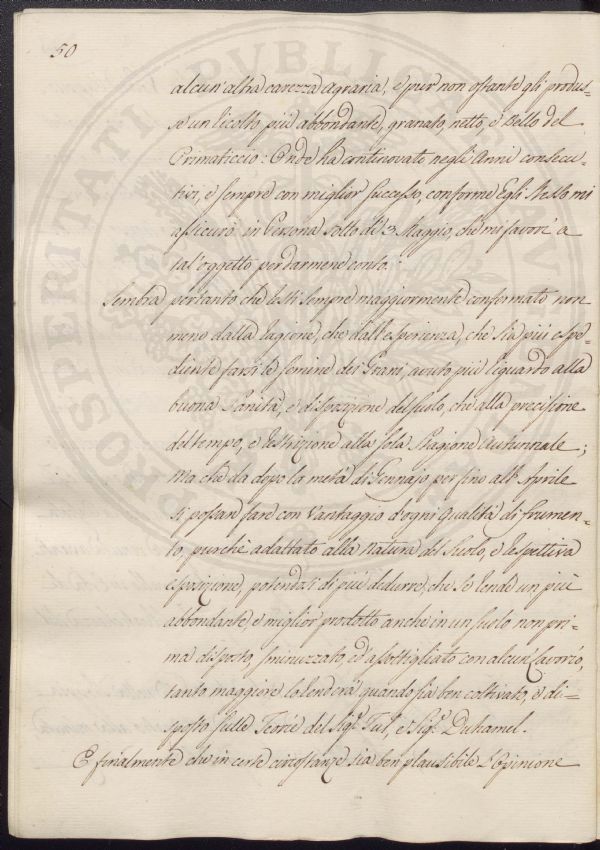 50
alcun'altra carezza agraria, e pur non ostante gli produs-
se un licolto più abbondante, granato, netto, e bello del
Primaticcio: Onde ha continovato negli Anni consecu-
tivi, e sempre con miglior successo, conforme Egli stesso mi
assicurò in Persona sotto dì 3. Maggio, che mi favorì a
tal'oggetto per darmene conto.
Sembra pertanto che resti sempre maggiormente confermato non
meno dalla ragione, che dall'esperienza, che sia più espe-
diente farsi le semine dei Grani, avuto più riguardo alla
buona Sanità, e disposizione del suolo, che alla precisione
del tempo, e restrizione alla sola Stagione Autunnale;
Ma che da dopo la metà di Gennajo per fino all' Aprile
si possan fare con vantaggio d'ogni qualità di frumen-
to, purchè adattato alla natura del suolo, e respettiva
esposizione, potendosi di più dedurre, che se rende un più
abbondante, e miglior prodotto anche in un suolo non pri-
ma disposto, sminuzzato, ed assottigliato con alcun lavorìo,
tanto maggiore lo renderà quando sia ben coltivato, e di-
sposto sulle Teorie del Sig.r Tul, e Sig.r Duhamel.
E finalmente che in certe circostanze sia ben plausibile l'Opinione
PROSPERITATI PUBLICAE